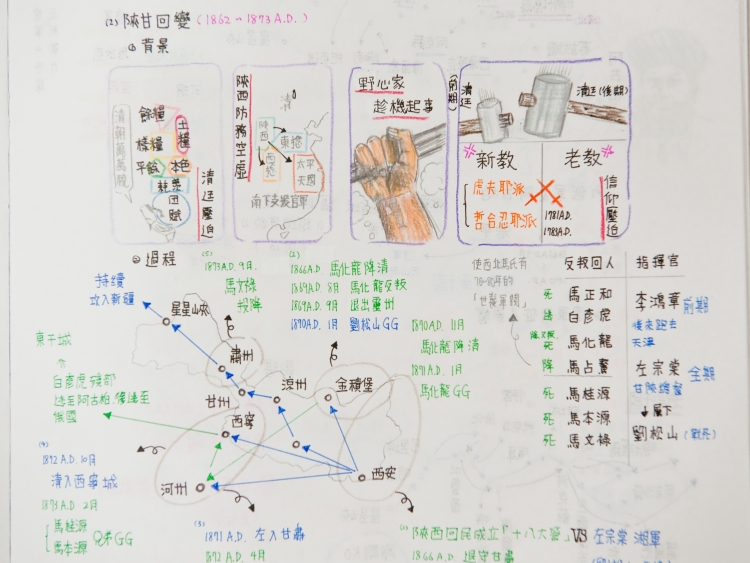 (2) 陝甘回變 (1862~1873 A.D.)
① 背景
清廷壓迫
餉糧
樣糧
平餘
土糧
本色
團
賦
陝西防務空虛
清
陝西
西捻
東捻
太平天國
南下支援官軍
野心家
趁機起事
(前期)
清廷
清廷(後期)
新教
老教
虎夫耶派
哲合忍耶派
1781A.D.
1783A.D.
信仰壓迫
② 過程
持續
攻入新疆
星星山峽
(5)
1873A.D. 9月.
馬文祿
投降
(2)
1866A.D. 馬化龍降清
1869A.D 8月 馬化龍反叛
1869A.D. 9月 退出靈州
1890A.D. 1月 劉松山GG
1890A.D. 11月
馬化龍降清
1891A.D. 1月
馬化龍 GG
使西北馬氏有
「世襲軍閥」
反叛回人
指揮官
死 馬正和
逃 白彥虎
死 馬化龍
降 馬占鰲
死 馬桂源
死 馬本源
死 馬文祿
李鴻章 前期
後來跑去
天津
左宗棠 全期
甘陝總督
↓屬下
劉松山 (戰死)
肅州
甘州
涼州
金積堡
西寧
河州
西安
白彥虎殘部
逃至阿古柏,後逃至
俄國
(4)
1892 A.D. 10月
清入西寧城
1893 A.D. 2月
馬桂源
馬本源
兄弟GG
(3)
1891 A.D. 左入甘肅
1892 A.D. 4月
(1)
陝西回民成立「十八大營」VS 左宗棠 湘軍
1866 A.D. 退守甘肅